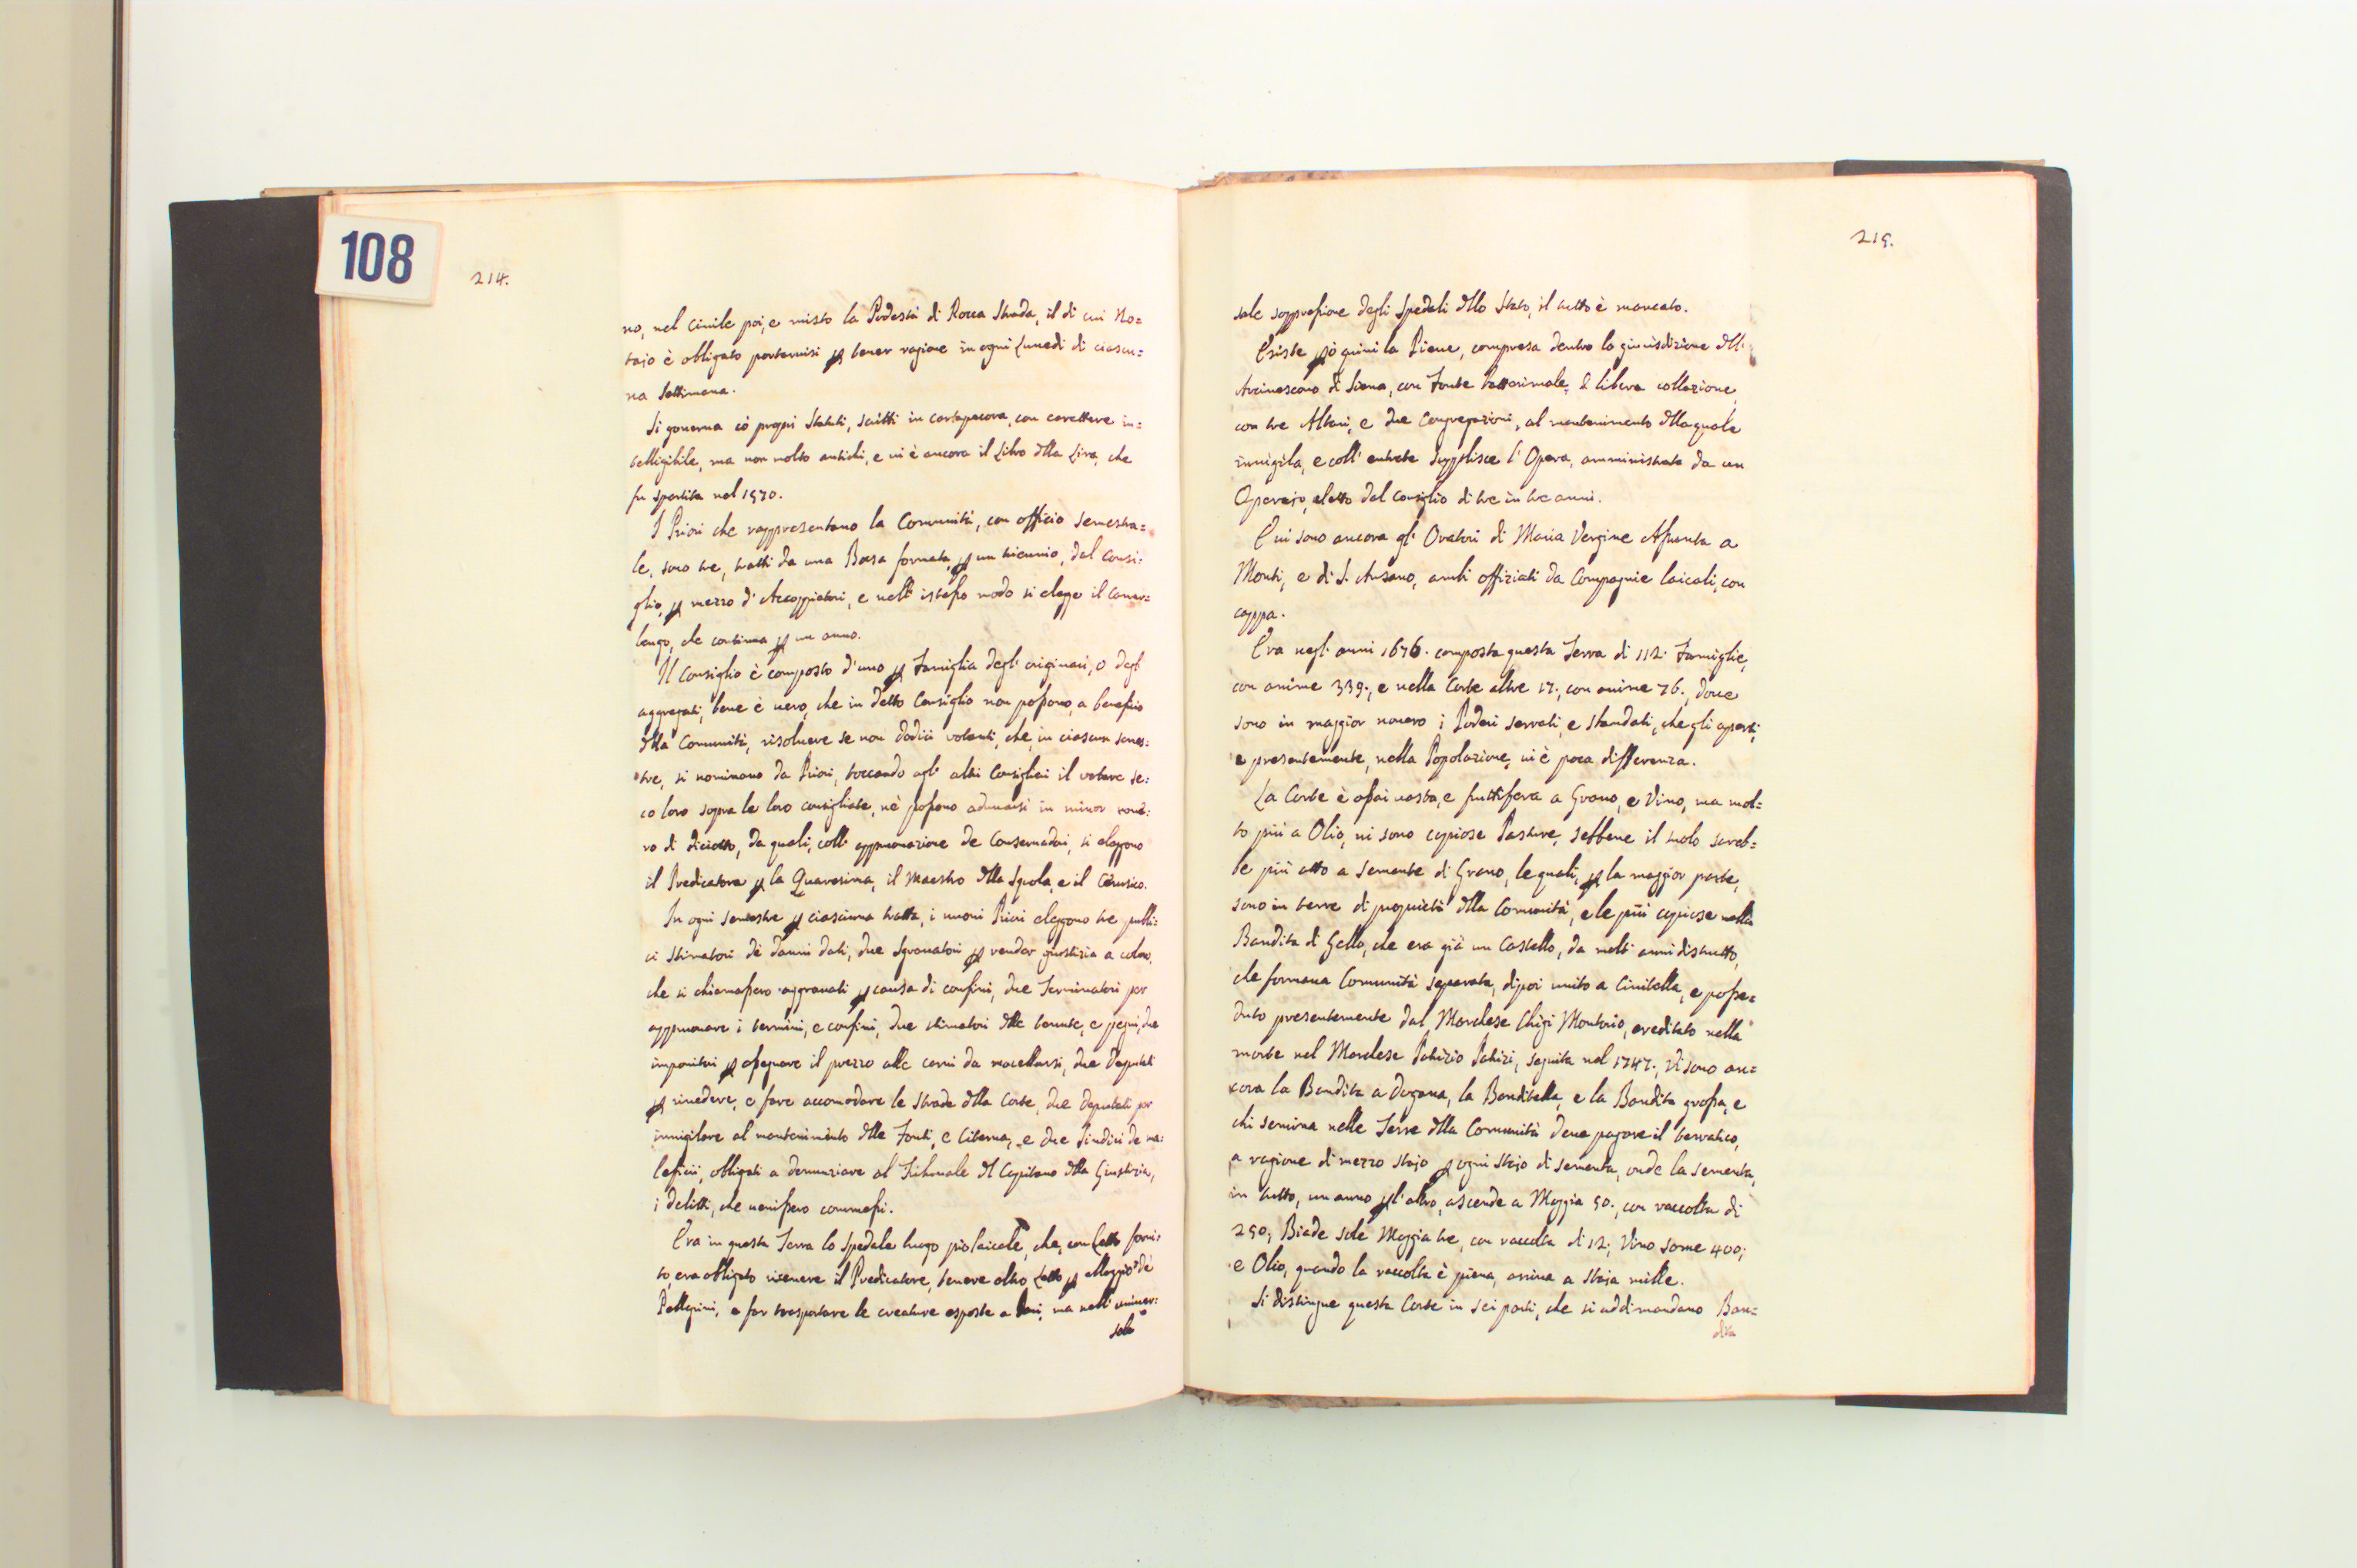 108
214.
no, nel Civile poi, e misto la Podestà di Rocca Strada, il di cui No=
taio è obligato portarvisi per tener ragione in ogni Lunedì di ciascu=
na Settimana.
Si governa cò propri Statuti, scritti in cartapecora, con carattere in=
telligibile, ma non molto antichi, e vi è ancora il Libro dlla Lira, che
fu spartita nel 1570.
I Priori che rappresentano la Comunità, con officio semestra=
le, sono tre, tratti da una Borsa formata, per un triennio, dal Consi=
glio, per mezzo d'Accoppiatori, e nell'istesso modo si elegge il Camar=
lengo, che continua per un anno.
Il Consiglio è composto d'uno per Famiglia degl'originari, o degl'
aggregati, bene è vero, che in detto Consiglio non possono, a benefizio
dlla Comunità, risolvere se non dodici votanti, che, in ciascun semes=
tre, si nominano da Priori, toccando agl'altri Consiglieri il votare se=
co loro sopra le loro consigliate, nè possono adunarsi in minor nome=
ro di diciotto, da quali, coll'approvazione de Conservadori, si eleggono
il Predicatore per la Quaresima, il Maestro dlla Squola, e il Cerusico.
In ogni semestre per ciascuna tratta, i nuovi Priori eleggono tre publi=
ci Stimatori dè danni dati, due Sgravatori per render giustizia a coloro,
che si chiamassero aggravati per causa di confini, due Terminatori per
approvare i termini, e confini, due stimatori dlle tenute, e pegni, due
impositori per assegnare il prezzo alle carni da macellarsi, due Deputati
per rivedere, e fare accomodare le strade dlla Corte, due deputati per
invigilare al mantenimento dlle Fonti, e Citerna, e due Sindici de ma=
leficii, obligati a denunziare al Tribunale dl Capitano dlla Giustizia,
i delitti, che venissero commessi.
Era in questa Terra lo Spedale luogo pio laicale, che, con Letto forni=
to, era obligato ricevere il Predicatore, tenere altro Letto per alloggio dè
Pellegrini, e far trasportare le creature esposte a ma nell'univer=
sale
215.
sale soppressione degli Spedali dllo Stato, il tutto è mancato.
Esiste però quivi la Pieve, compresa dentro la giurisdizione dll'
Arcivescovo di Siena, con Fonte battesimale, di libera collazione,
con tre Altari, e due Congregazioni, al mantenimento dlla quale
invigila, e coll'entrate supplisce l'Opera, amministrata da un
Operaio, eletto dal Consiglio di tre in tre anni.
E vi sono ancora gl'Oratori di Maria Vergine Assunta a
Monti, e di S. Ansano, ambi offiziati da Compagnie laicali, con
cappa.
Era negl'anni 1676. composta questa Terra di 112. Famiglie,
con anime 339., e nella Corte altre 17., con anime 76., dove
sono in maggior novero i Poderi serrati, e standati, che gli aperti,
e presentemente, nella Popolazione, vi è poca differenza.
La Corte è assai vasta, e fruttifera a Grano, e Vino, ma mol=
to più a Olio, vi sono copiose Pasture, sebbene il suolo sareb=
be più atto a semente di Grano, le quali, per la maggior parte,
sono in terre di proprietà dlla Comunità, e le più copiose nella
Bandita di Gello, che era già un Castello, da molti anni distrutto,
che formava Comunità separata, dipoi unito a Civitella, e posse=
duto presentemente dal Marchese Chigi Montorio, ereditato nella
morte nel Marchese Patrizio Patrizi, seguita nel 1747., Vi sono an=
cora la Bandita a Dogana, la Banditella, e la Bandita grossa, e
chi semina nelle Terre dlla Comunità deve pagare il terratico,
a ragione di mezzo staio per ogni staio di sementa, onde la sementa,
in tutto, un anno per l'altro, ascende a Moggia 50., con raccolta di
250; Biade sole Moggia tre, con raccolta di 12; Vino some 400;
e Olio, quando la raccolta è piena, arriva a Staia mille.
Si distingue questa Corte in sei parti, che si addimandano Ban=
dita